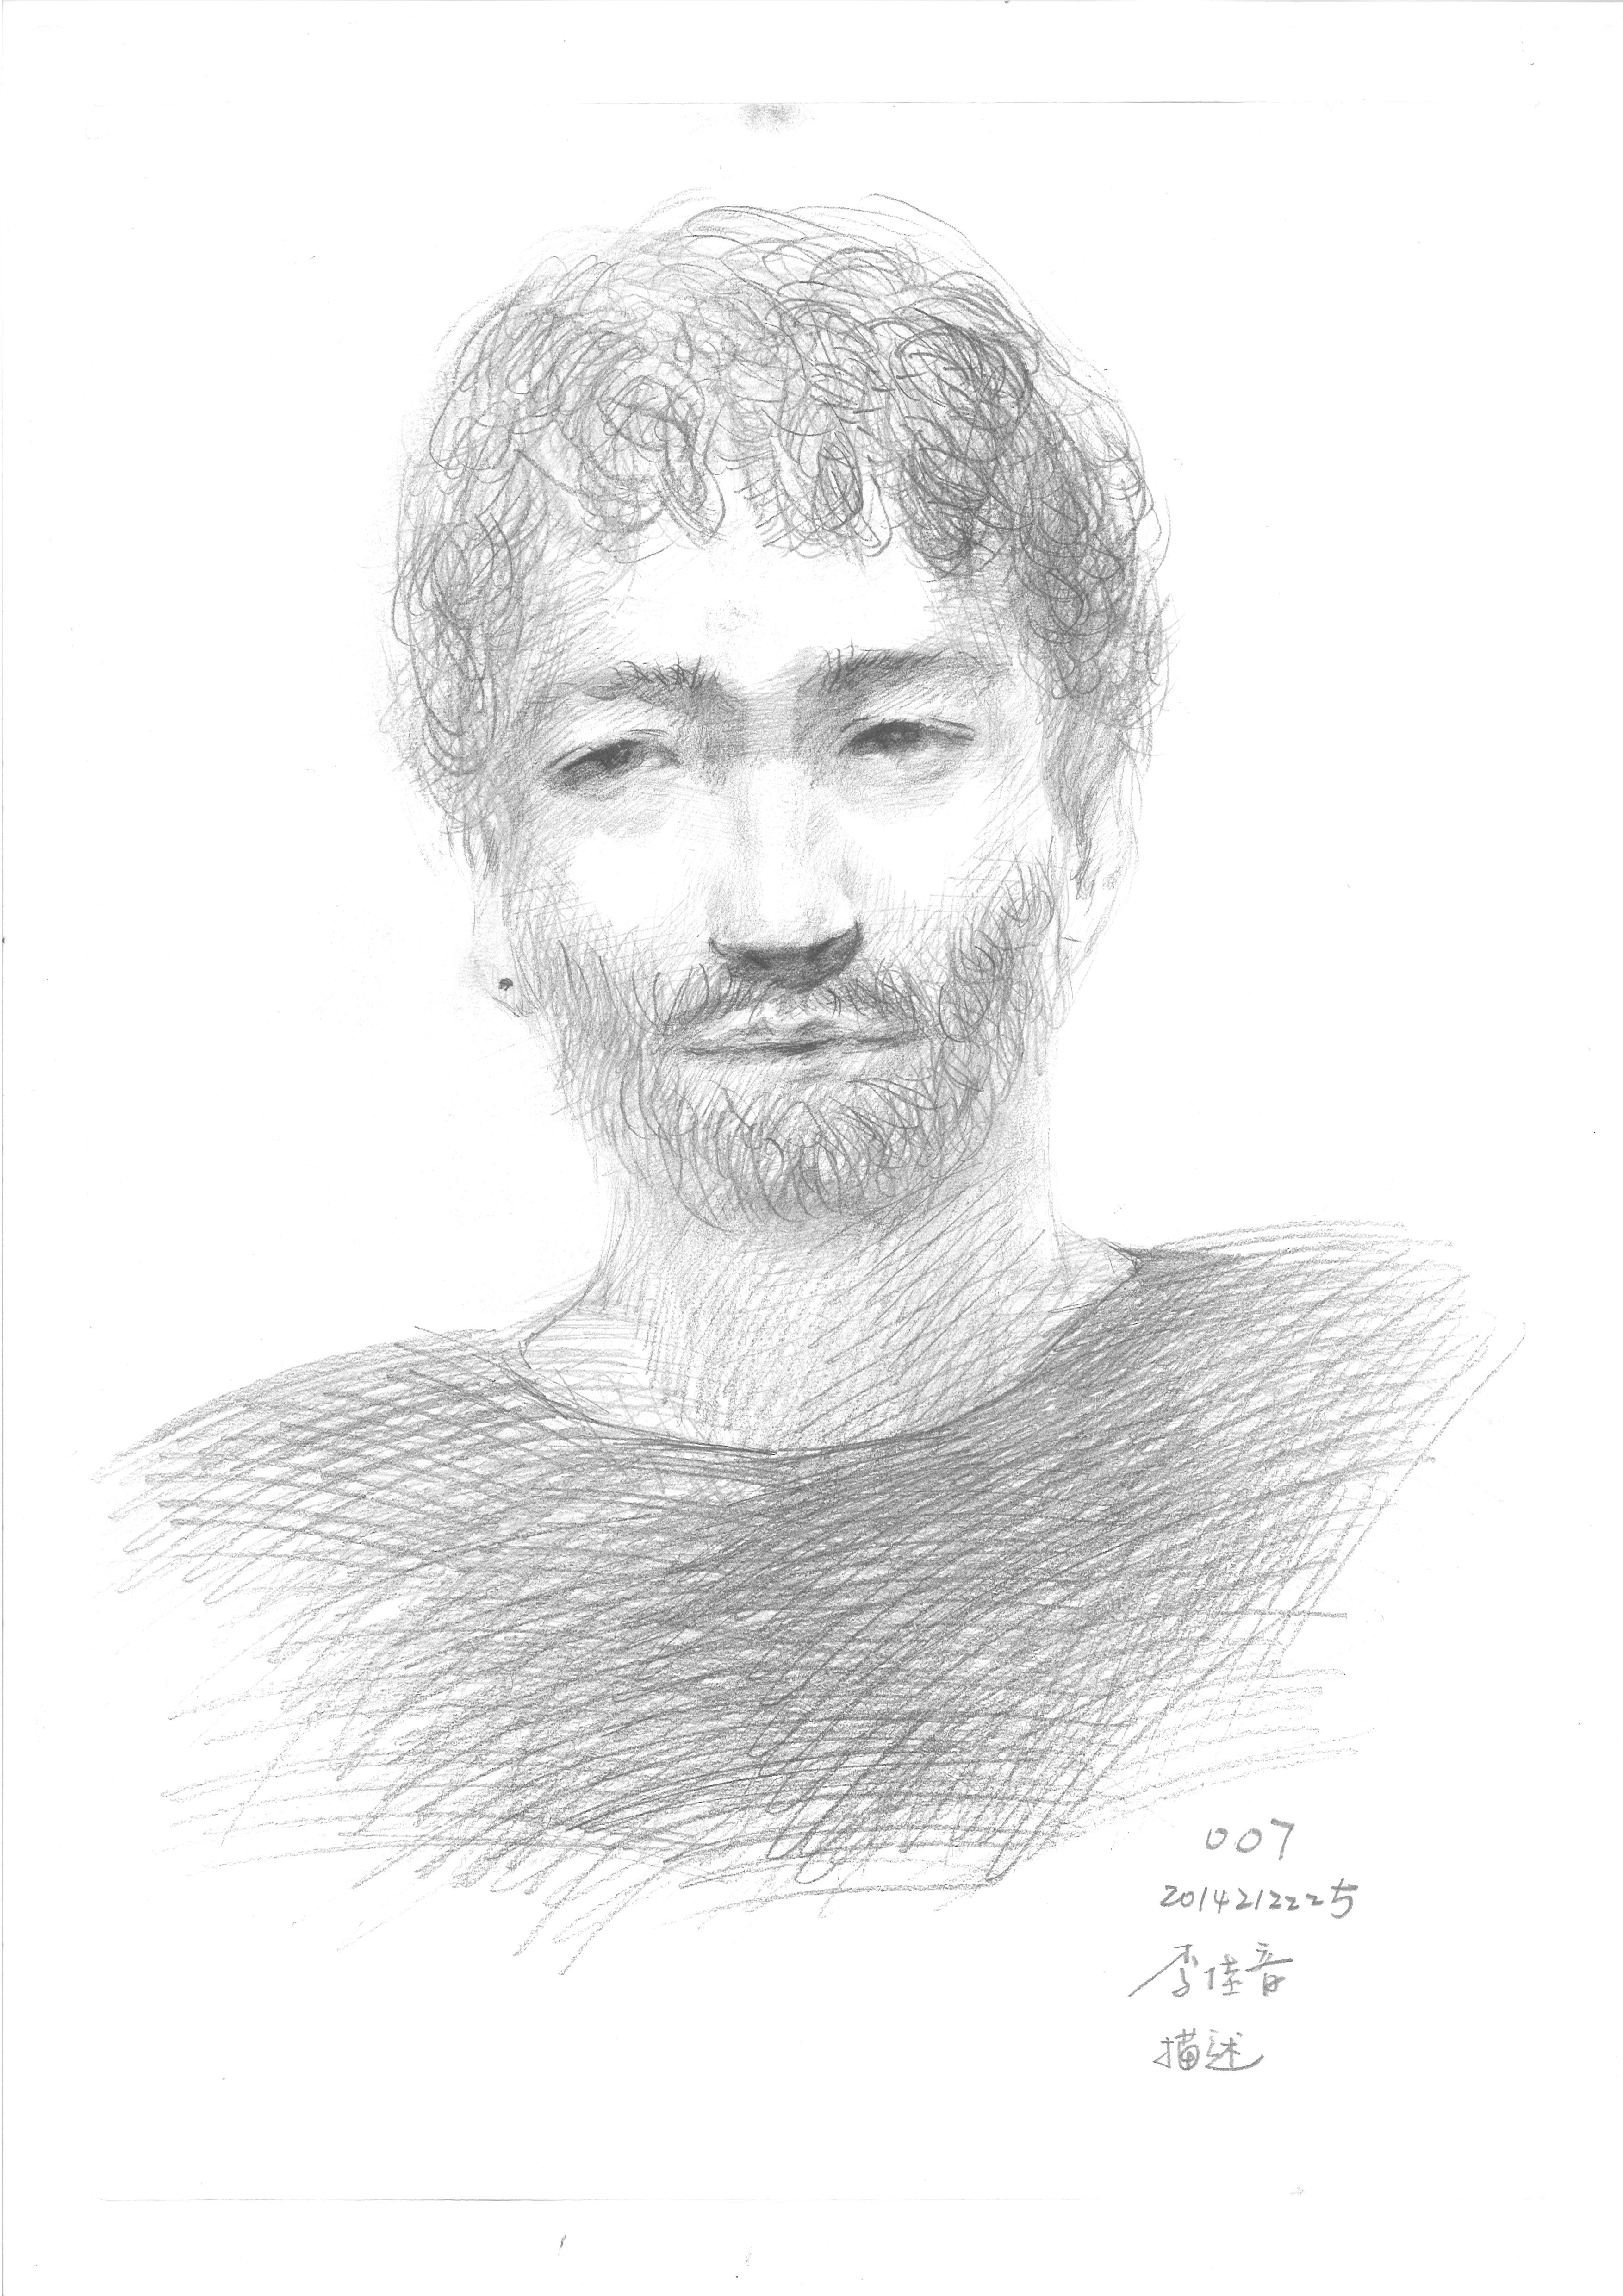 007
2014212225
李佳音
描述